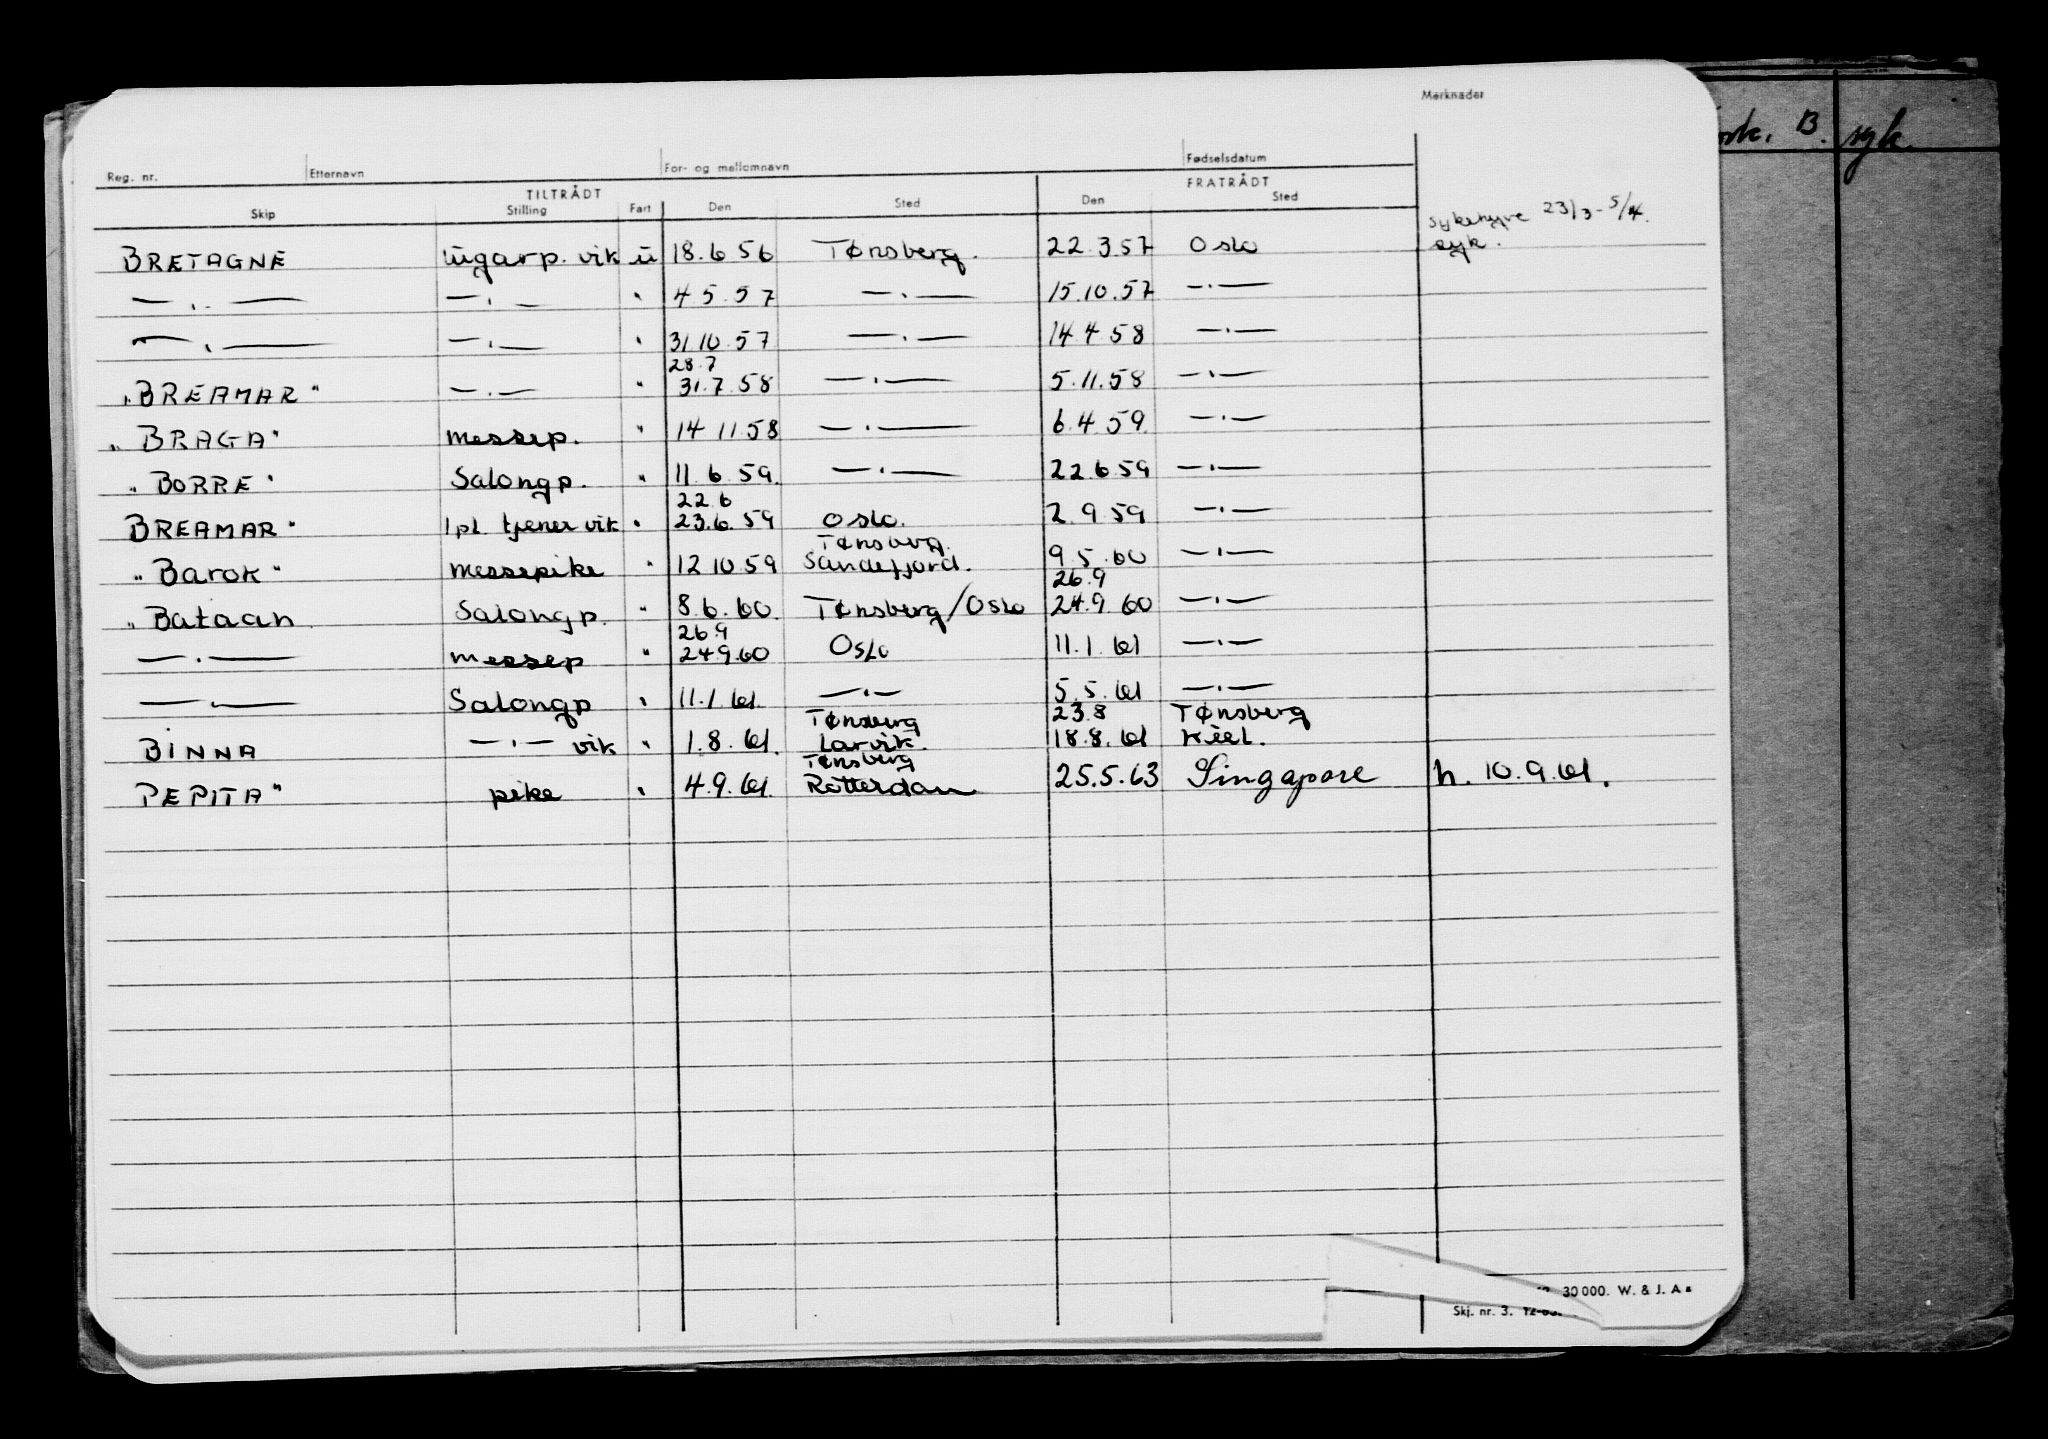 Merknader
Reg. nr. Etternavn For- og mellomnavn Fødselsdatum
TILTRÅDT FRATRÅDT
Skip Stilling Fart Den Sted Den Sted
sykehyre 23/3 - 5/4.
BRETAGNE lugarp. vik u 18.6 56 Tønsberg. 22.3.57 Oslo syk.
— . — — . — " 4 5. 57 — . — 15.10.57 — . —
— . — — . — " 31 10. 57 — . — 14 4 58 — . —
28.7
"BREAMAR" — . — " 31.7.58 — . — 5.11.58 — . —
"BRAGA" messep. " 14 11 58 — . — 6.4.59. — . —
"BORRE" Salongp. " 11.6.59. — . — 22.6.59 — . —
22.6
BREAMAR" 1pl. tjener vik " 23.6.59 Oslo. 2.9 59 — . —
Tønsberg.
"Barok" messepike " 12 10 59 Sandefjord. 9.5.60 — . —
26.9
"Bataan Salongp. " 8.6.60. Tønsberg/Oslo 24.9.60 — . —
26.9
— . — messep " 24.9.60 Oslo 11.1.61 — . —
— . — Salongp " 11.1.61. — . — 5.5.61 — . —
Tønsberg 23.8 Tønsberg
BINNA — . — vik " 1.8.61. Larvik. 18.8.61 Kiel.
Tønsberg
PEPITA" pike " 4.9.61. Rotterdam 25.5.63 Singapore h. 10.9.61.
30 000. W. & J. A s
Skj. nr. 3.
B. syk.